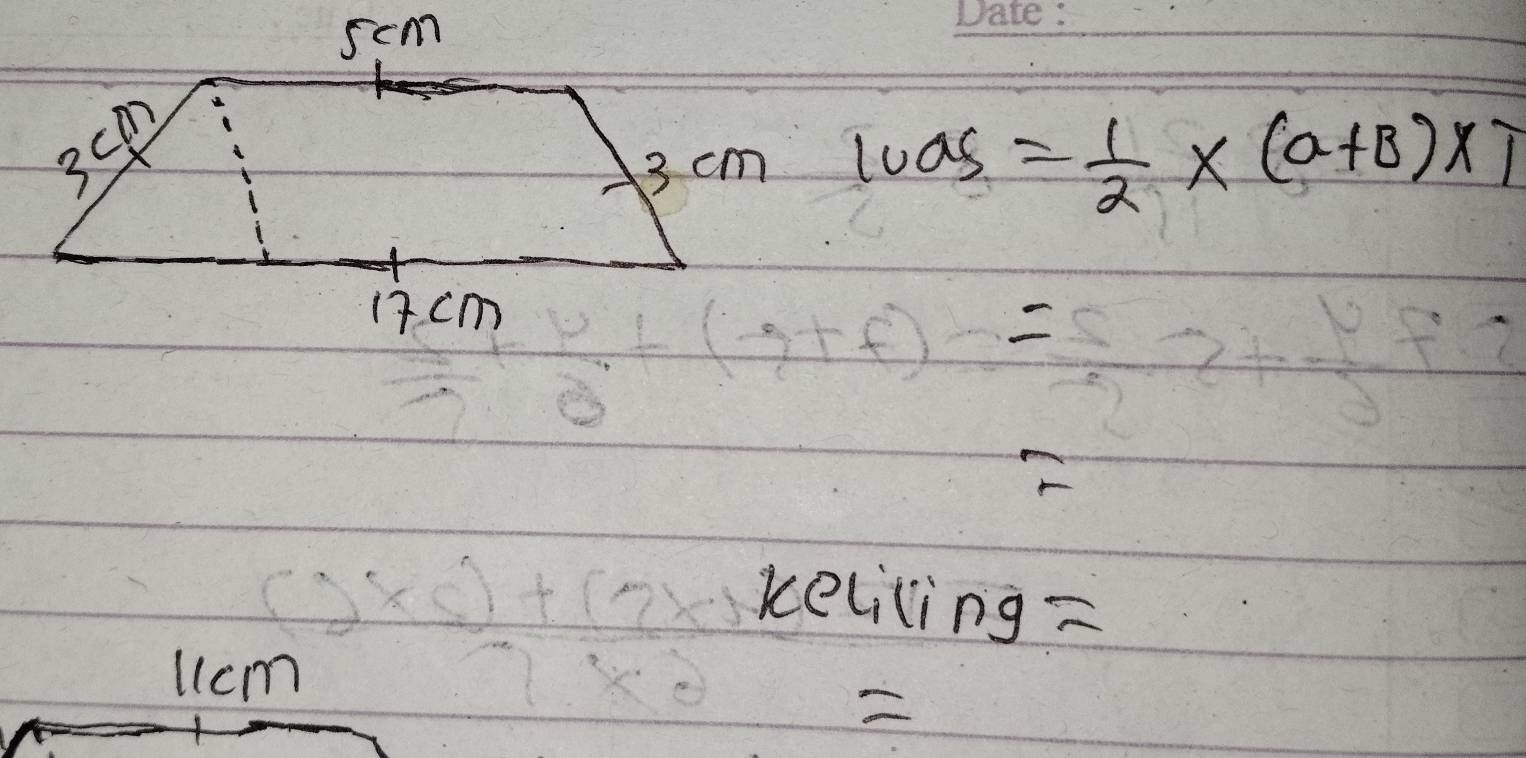 Date :
5cm
3cm
3 cm
17cm
luas = 1/2 x (a+B) x T
=
=
keliling =
=
11cm